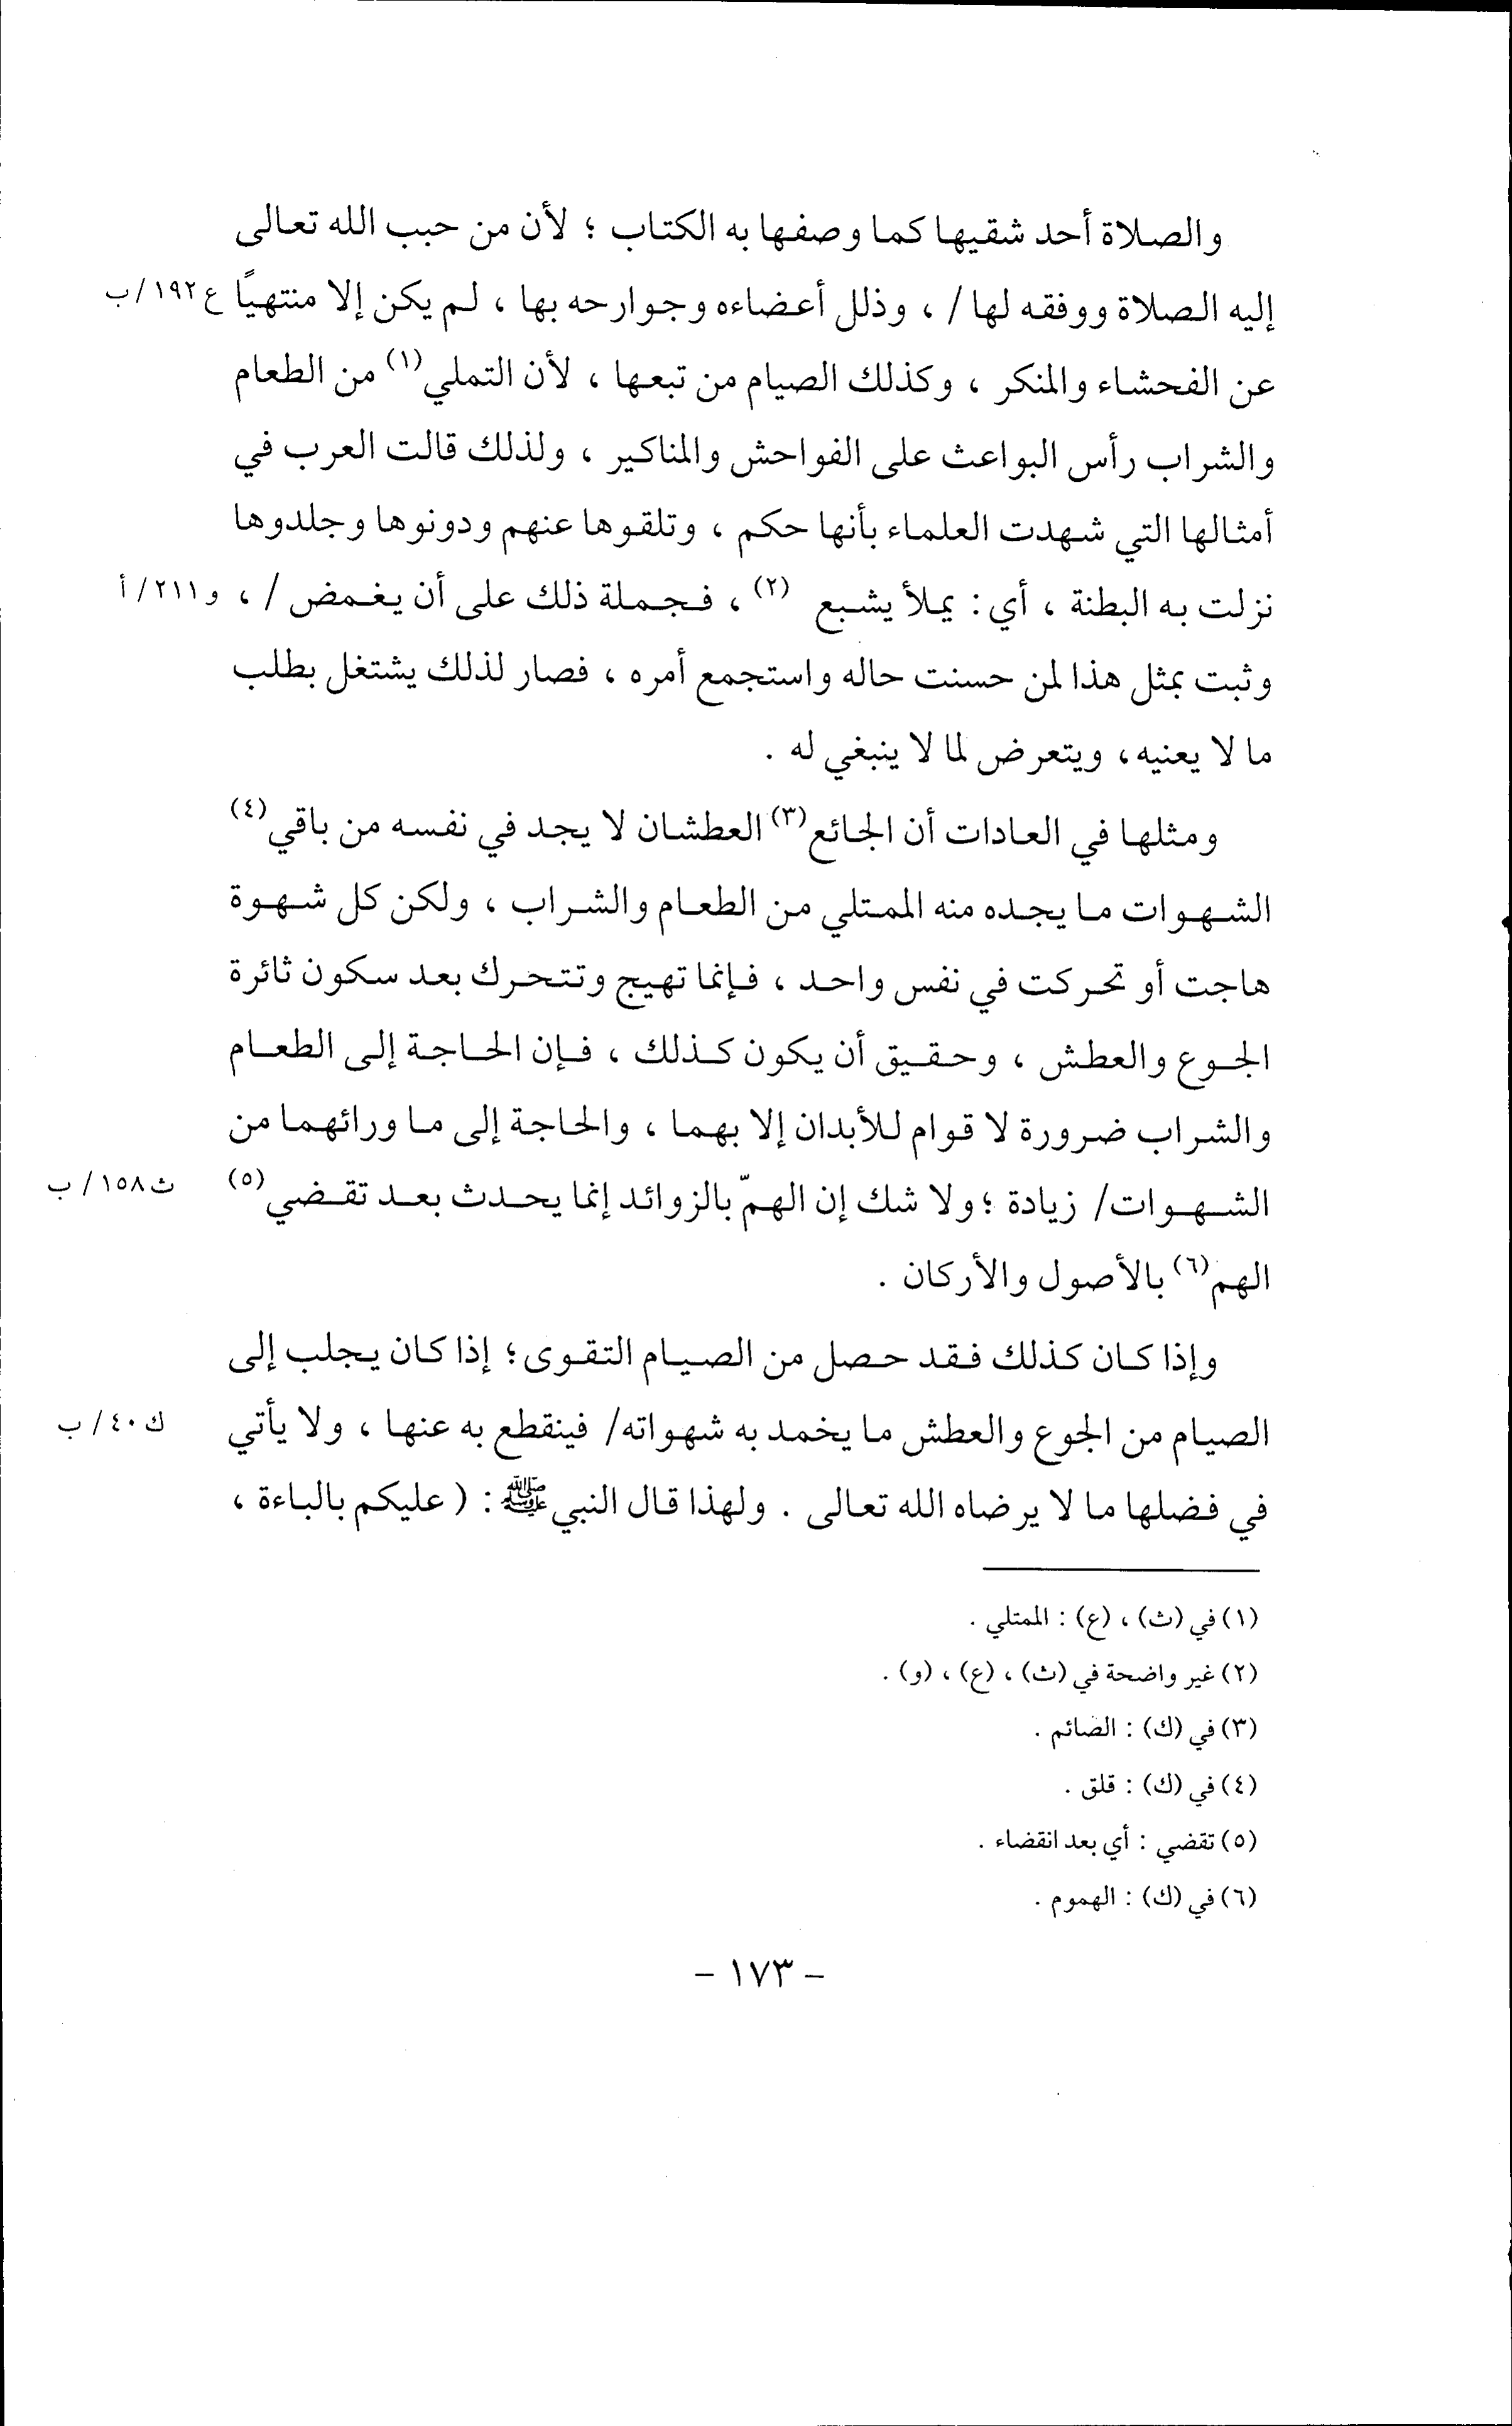 والصلاة أحد شقيها كما وصفها به الكتاب ؛ لأن من حبب الله تعالى
إليه الصلاة ووفقه لها / ، وذلل أعضاءه وجوارحه بها ، لم يكن إلا منتهيًا ع ١٩٢ / ب
عن الفحشاء والمنكر ، وكذلك الصيام من تبعها ، لأن التملي(١) من الطعام
والشراب رأس البواعث على الفواحش والمناكير ، ولذلك قالت العرب في
أمثالها التي شهدت العلماء بأنها حكم ، وتلقوها عنهم ودونوها وجلدوها
نزلت به البطنة ، أي : يملأ يشبع (٢) ، فجملة ذلك على أن يغمض / ، و ٢١١ / أ
وثبت بمثل هذا لمن حسنت حاله واستجمع أمره ، فصار لذلك يشتغل بطلب
ما لا يعنيه ، ويتعرض لما لا ينبغي له .
ومثلها في العادات أن الجائع(٣) العطشان لا يجد في نفسه من باقي(٤)
الشهوات ما يجده منه الممتلي من الطعام والشراب ، ولكن كل شهوة
هاجت أو تحركت في نفس واحد ، فإنما تهيج وتتحرك بعد سكون ثائرة
الجوع والعطش ، وحقيق أن يكون كذلك ، فإن الحاجة إلى الطعام
والشراب ضرورة لا قوام للأبدان إلا بهما ، والحاجة إلى ما ورائهما من
الشهوات / زيادة ؛ ولا شك إن الهمّ بالزوائد إنما يحدث بعد تقضي(٥) ث ١٥٨ / ب
الهم(٦) بالأصول والأركان .
وإذا كان كذلك فقد حصل من الصيام التقوى ؛ إذا كان يجلب إلى
الصيام من الجوع والعطش ما يخمد به شهواته / فينقطع به عنها ، ولا يأتي ك ٤٠ / ب
في فضلها ما لا يرضاه الله تعالى . ولهذا قال النبي ﷺ : ( عليكم بالباءة ،
(١) في (ث) ، (ع) : الممتلي .
(٢) غير واضحة في (ث) ، (ع) ، (و) .
(٣) في (ك) : الصائم .
(٤) في (ك) : قلق .
(٥) تقضي : أي بعد انقضاء .
(٦) في (ك) : الهموم .
– ١٧٣ –